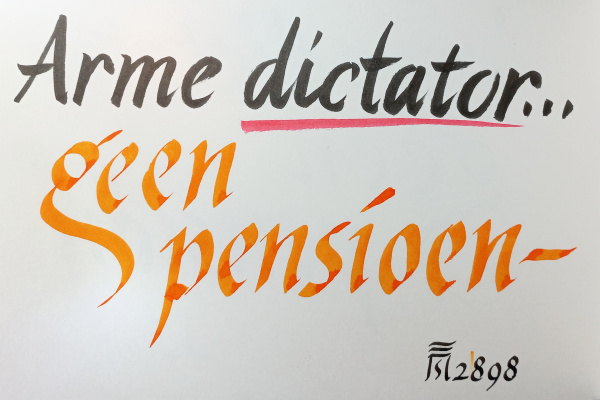 Arme dictator...
geen
pensioen-
2898